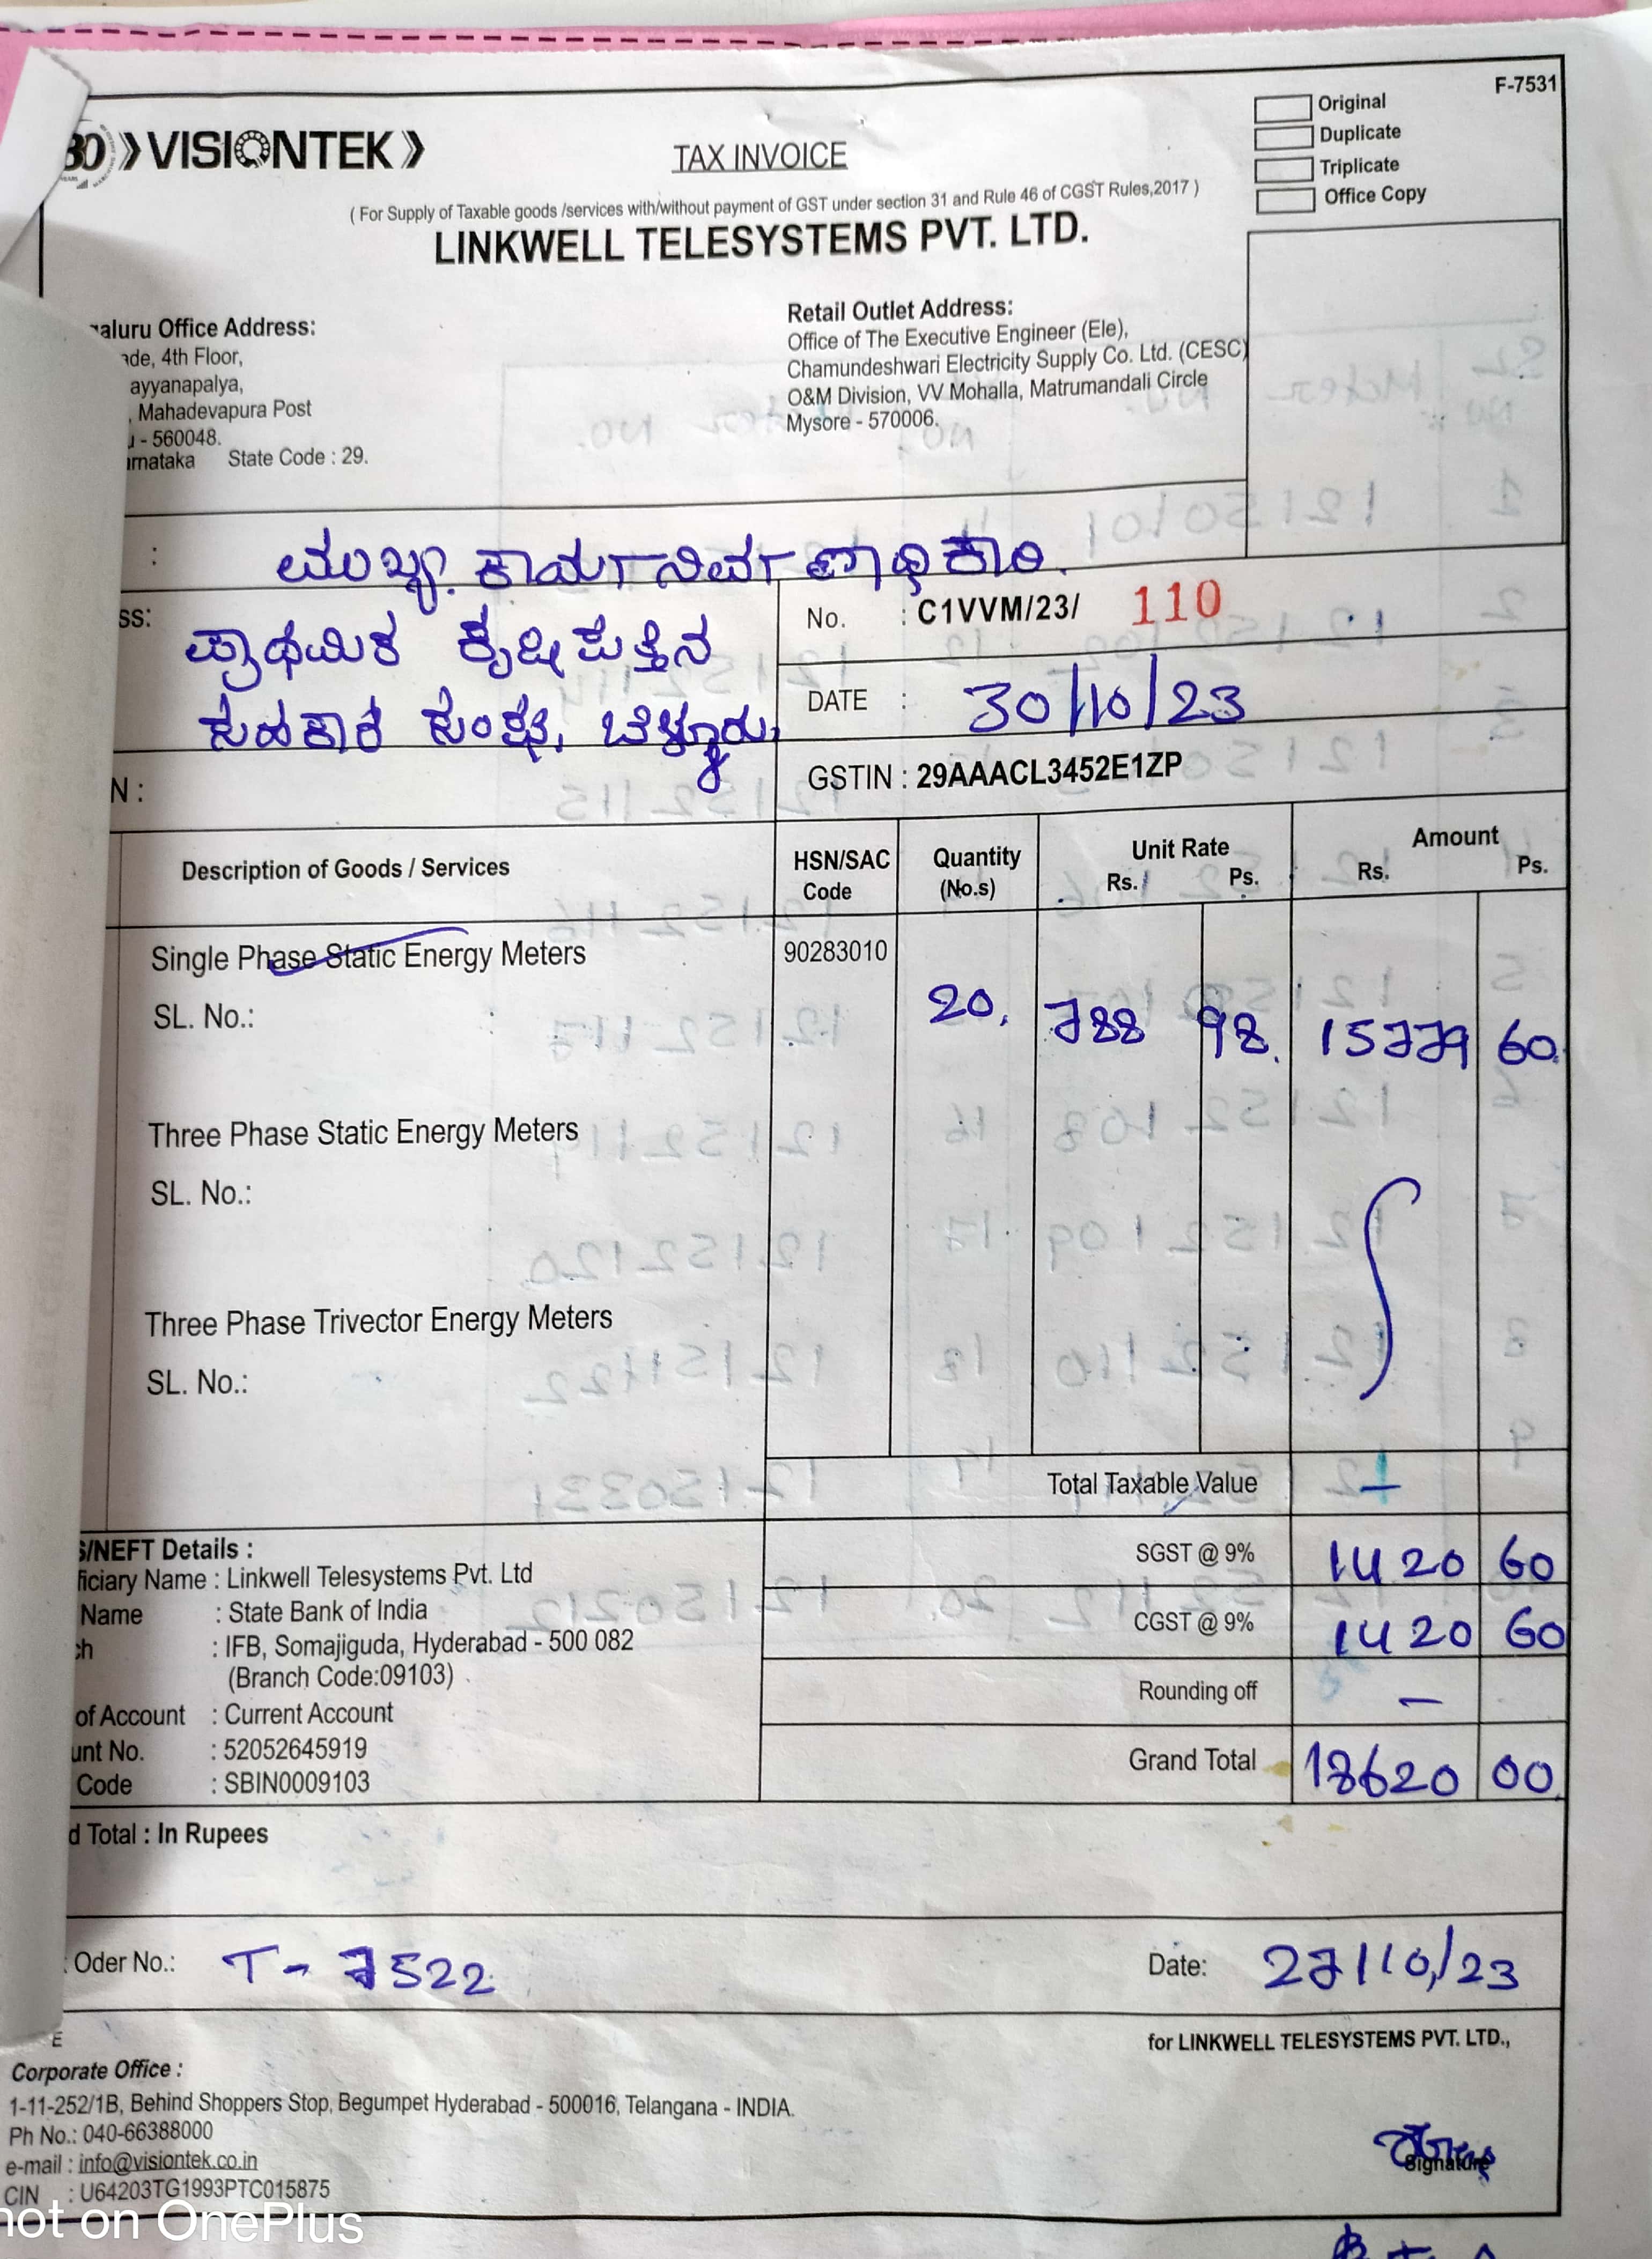 F-7531
Original
Duplicate
Triplicate
Office Copy
30 VISIONTEK
TAX INVOICE
( For Supply of Taxable goods /services with/without payment of GST under section 31 and Rule 46 of CGST Rules,2017 )
LINKWELL TELESYSTEMS PVT. LTD.
aluru Office Address:
ade, 4th Floor,
ayyanapalya,
, Mahadevapura Post
- 560048.
rnataka State Code : 29.
Retail Outlet Address:
Office of The Executive Engineer (Ele),
Chamundeshwari Electricity Supply Co. Ltd. (CESC)
O&M Division, VV Mohalla, Matrumandali Circle
Mysore - 570006.
: ಮುಖ್ಯ ಕಾರ್ಯನಿರ್ವಣಾಧಿಕಾರಿ.
ss: ಪ್ರಾಥಮಿಕ ಕೃಷಿ ಪತ್ತಿನ
ಸಹಕಾರ ಸಂಘ, ಬೆಳ್ಳೂರು,
N :
No. : C1VVM/23/ 110
DATE : 30/10/23
GSTIN : 29AAACL3452E1ZP
Description of Goods / Services HSN/SAC Code Quantity (No.s) Unit Rate Rs. Ps. Amount Rs. Ps.
Single Phase Static Energy Meters 90283010
SL. No.: 20. 788 98. 15779 60.
Three Phase Static Energy Meters
SL. No.:
Three Phase Trivector Energy Meters
SL. No.:
Total Taxable Value
SGST @ 9% 1420 60
CGST @ 9% 1420 60
Rounding off —
Grand Total 18620 00.
S/NEFT Details :
ficiary Name : Linkwell Telesystems Pvt. Ltd
Name : State Bank of India
ch : IFB, Somajiguda, Hyderabad - 500 082
(Branch Code:09103)
of Account : Current Account
unt No. : 52052645919
Code : SBIN0009103
d Total : In Rupees
Oder No.: T- 7522 Date: 27/10/23
E
for LINKWELL TELESYSTEMS PVT. LTD.,
Corporate Office :
1-11-252/1B, Behind Shoppers Stop, Begumpet Hyderabad - 500016, Telangana - INDIA.
Ph No.: 040-66388000
e-mail : info@visiontek.co.in
CIN : U64203TG1993PTC015875
Signature
hot on OnePlus